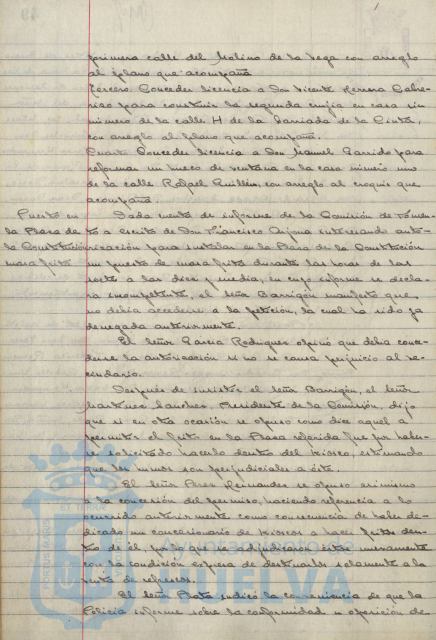 primera calle del Molino de la Vega con arreglo
al plano que acompaña
Tercero Conceder licencia a Don Vicente Herrera Cabre-
rizo para construir la segunda crujía en casa sin
número de la calle H de la Barriada de la Cinta,
con arreglo al plano que acompaña.
Cuarto Conceder licencia a Don Manuel Garrido para
reformar un hueco de ventana en la casa número uno
de la calle Rafael Guillén, con arreglo al croquis que
acompaña.
Puesto en
la Plaza de
la Constitución
masa frita
Dada cuenta de informe de la Comisión de Fomen-
to a escrito de Don Francisco Arjona interesando auto-
rización para instalar en la Plaza de la Constitución
un puesto de masa frita durante las horas de las
siete a las diez y media, en cuyo informe se decla-
ra incompetente, el señor Barrigón manifestó que
no debía accederse a la petición, la cual ha sido ya
denegada anteriormente.
El señor Garcia Rodriguez opinó que debía conce-
derse la autorización si no se causa perjuicio al ve-
cindario.
Después de insistir el señor Barrigón, el señor
Martinez Sanchez, Presidente de la Comisión, dijo
que si en otra ocasión se opuso como dice aquel a
permitir el frito en la Plaza referida fue por haber-
se solicitado hacerlo dentro del kiosco, estimando
que los humos son perjudiciales a éste.
El señor Perez Hernandez se opuso asimismo
a la concesión del permiso, haciendo referencia a lo
ocurrido anteriormente como consecuencia de haber de-
dicado un concesionario de kioscos a hacer fritos den-
tro de él, por lo que se adjudicaron estos nuevamente
con la condición expresa de destinarlos solamente a la
venta de refrescos.
El señor Plata indicó la conveniencia de que la
Policía informe sobre la conformidad u oposición de
SET TERRAE
PORTUS MARIS
Ayuntamiento de
HUELVA